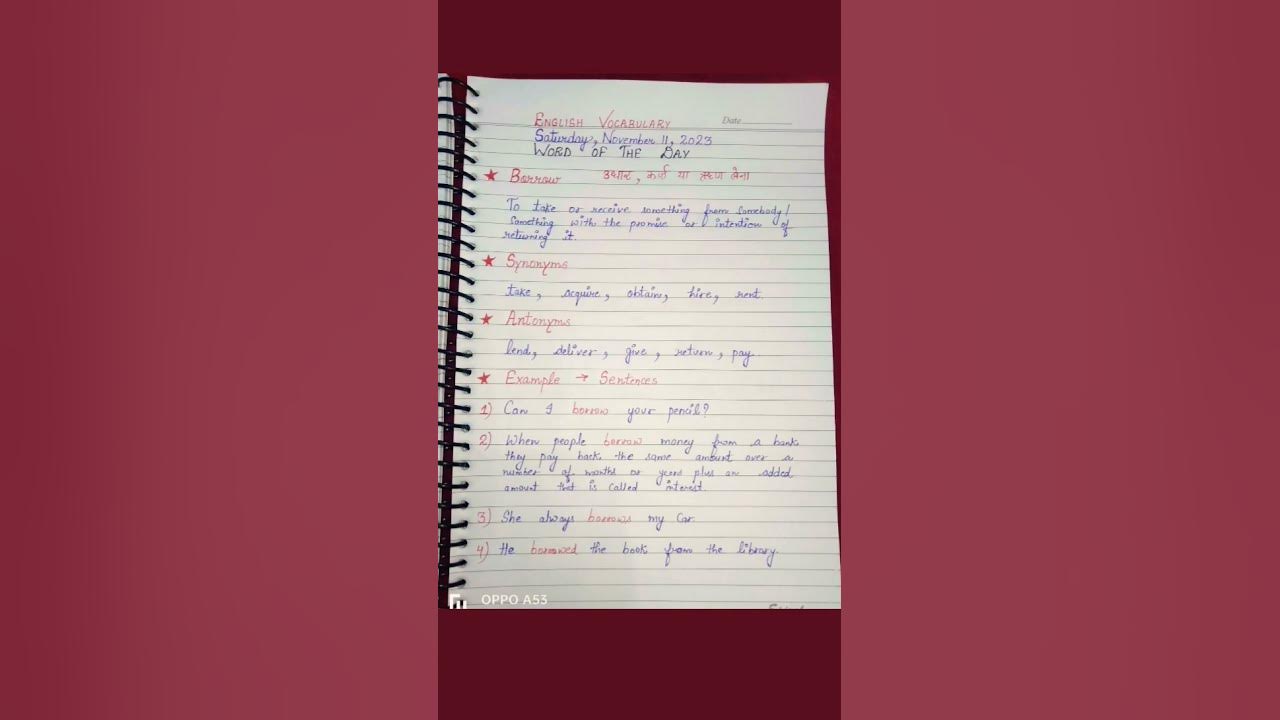 ENGLISH VOCABULARY
Date
Saturday, November 11, 2023
WORD OF THE DAY
★ Borrow उधार, कर्ज या ऋण लेना
To take or receive something from somebody/
Something with the promise or intention of
returning it.
★ Synonyms
take, acquire, obtain, hire, rent.
★ Antonyms
lend, deliver, give, return, pay.
★ Example → Sentences
1) Can I borrow your pencil?
2) When people borrow money from a bank
they pay back the same amount over a
number of months or years plus an added
amount that is called interest.
3) She always borrows my Car.
4) He borrowed the book from the library.
OPPO A53